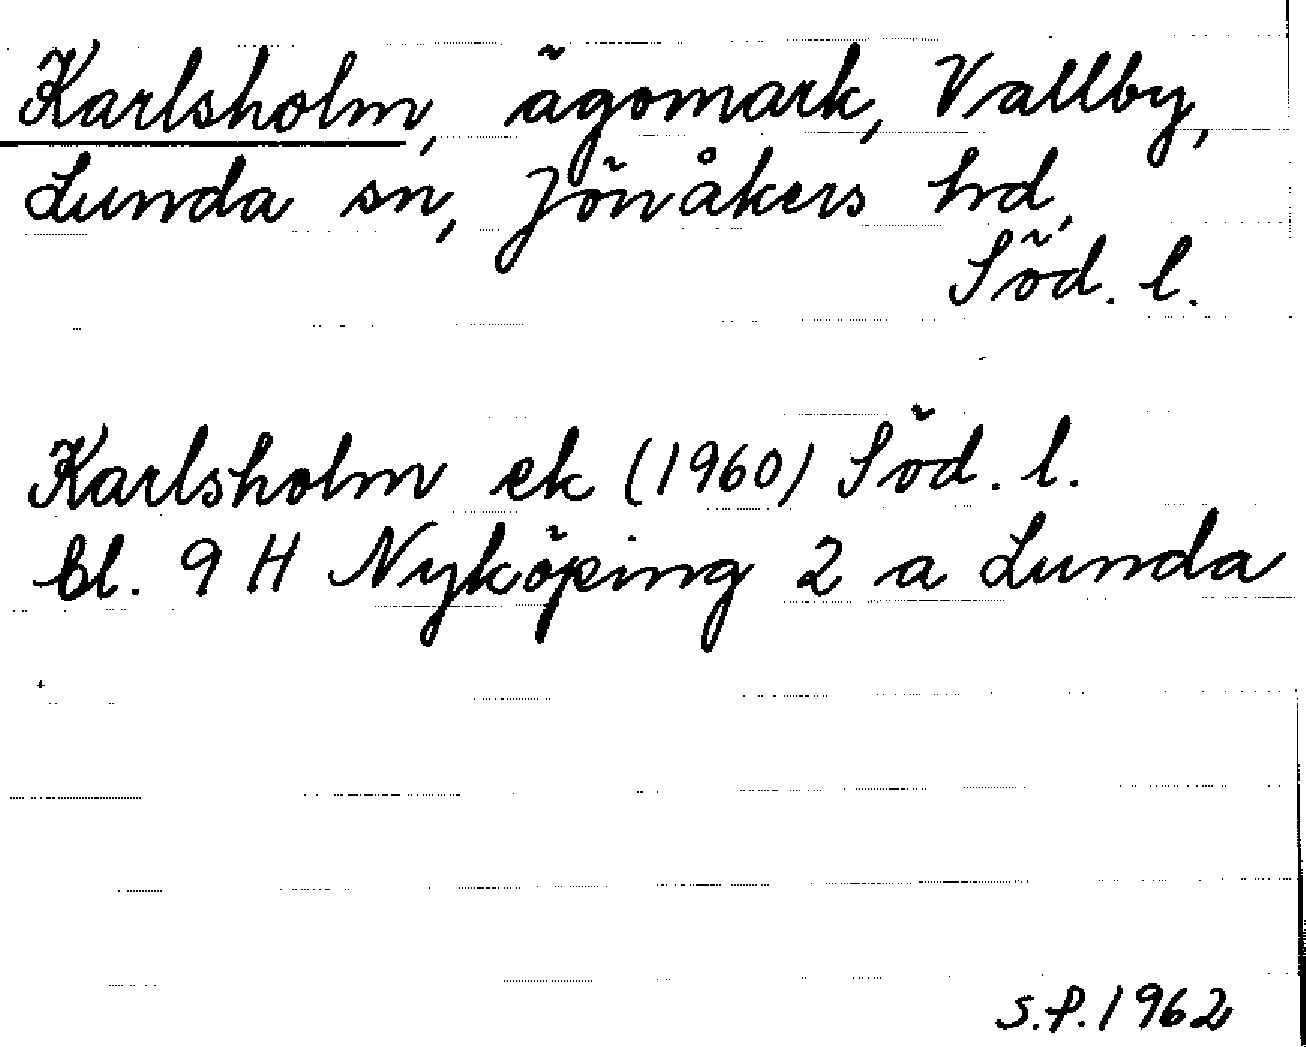 Karlsholm, ägomark, Vallby,
Lunda sn, Jönåkers hd,
Söd. l.
Karlsholm ek (1960) Söd. l.
bl. 9 H Nyköping 2 a Lunda
S.P. 1962